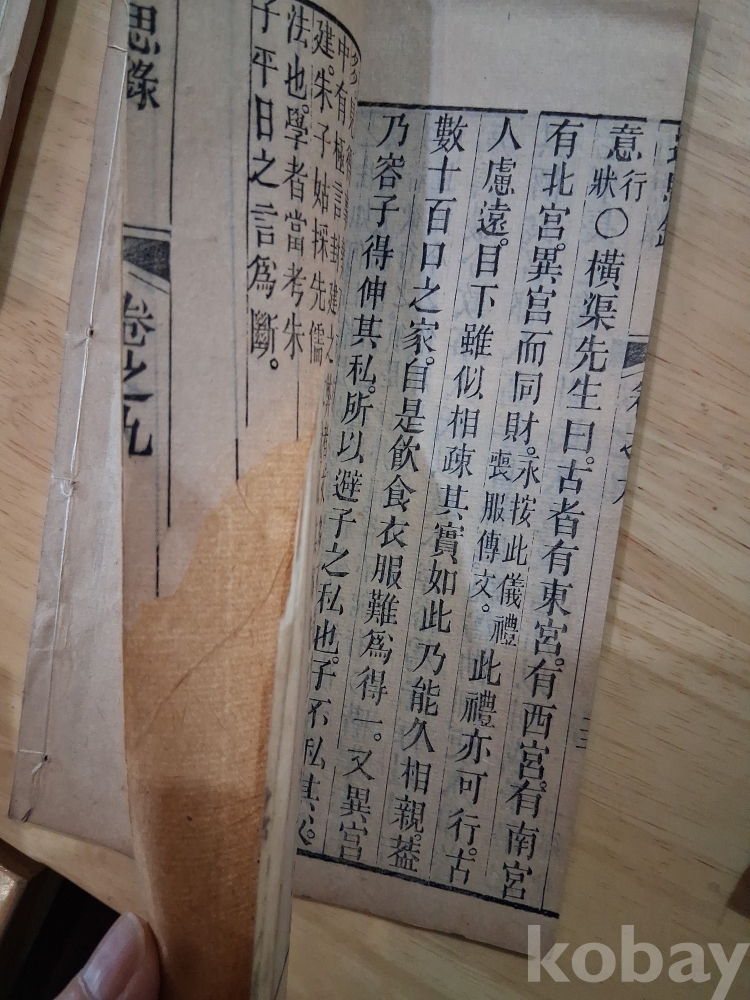 意行狀○橫渠先生曰。古者有東宮。有西宮。有南宮
有北宮。異宮而同財。永按此儀禮喪服傳文。此禮亦可行。古
人慮遠。目下雖似相疎其實如此乃能久相親。蓋
數十百口之家。自是飮食衣服難爲得一。又異宮
乃容子得伸其私。所以避子之私也。子不私其父。
中有極言封建之
建。朱子姑採先儒
法也。學者當考朱
子平日之言爲斷。
思錄
卷之九
kobay